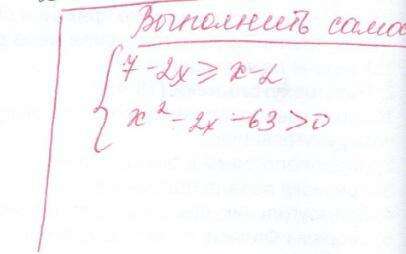 Выполнить само
7 - 2x ≥ x - 2
x² - 2x - 63 > 0